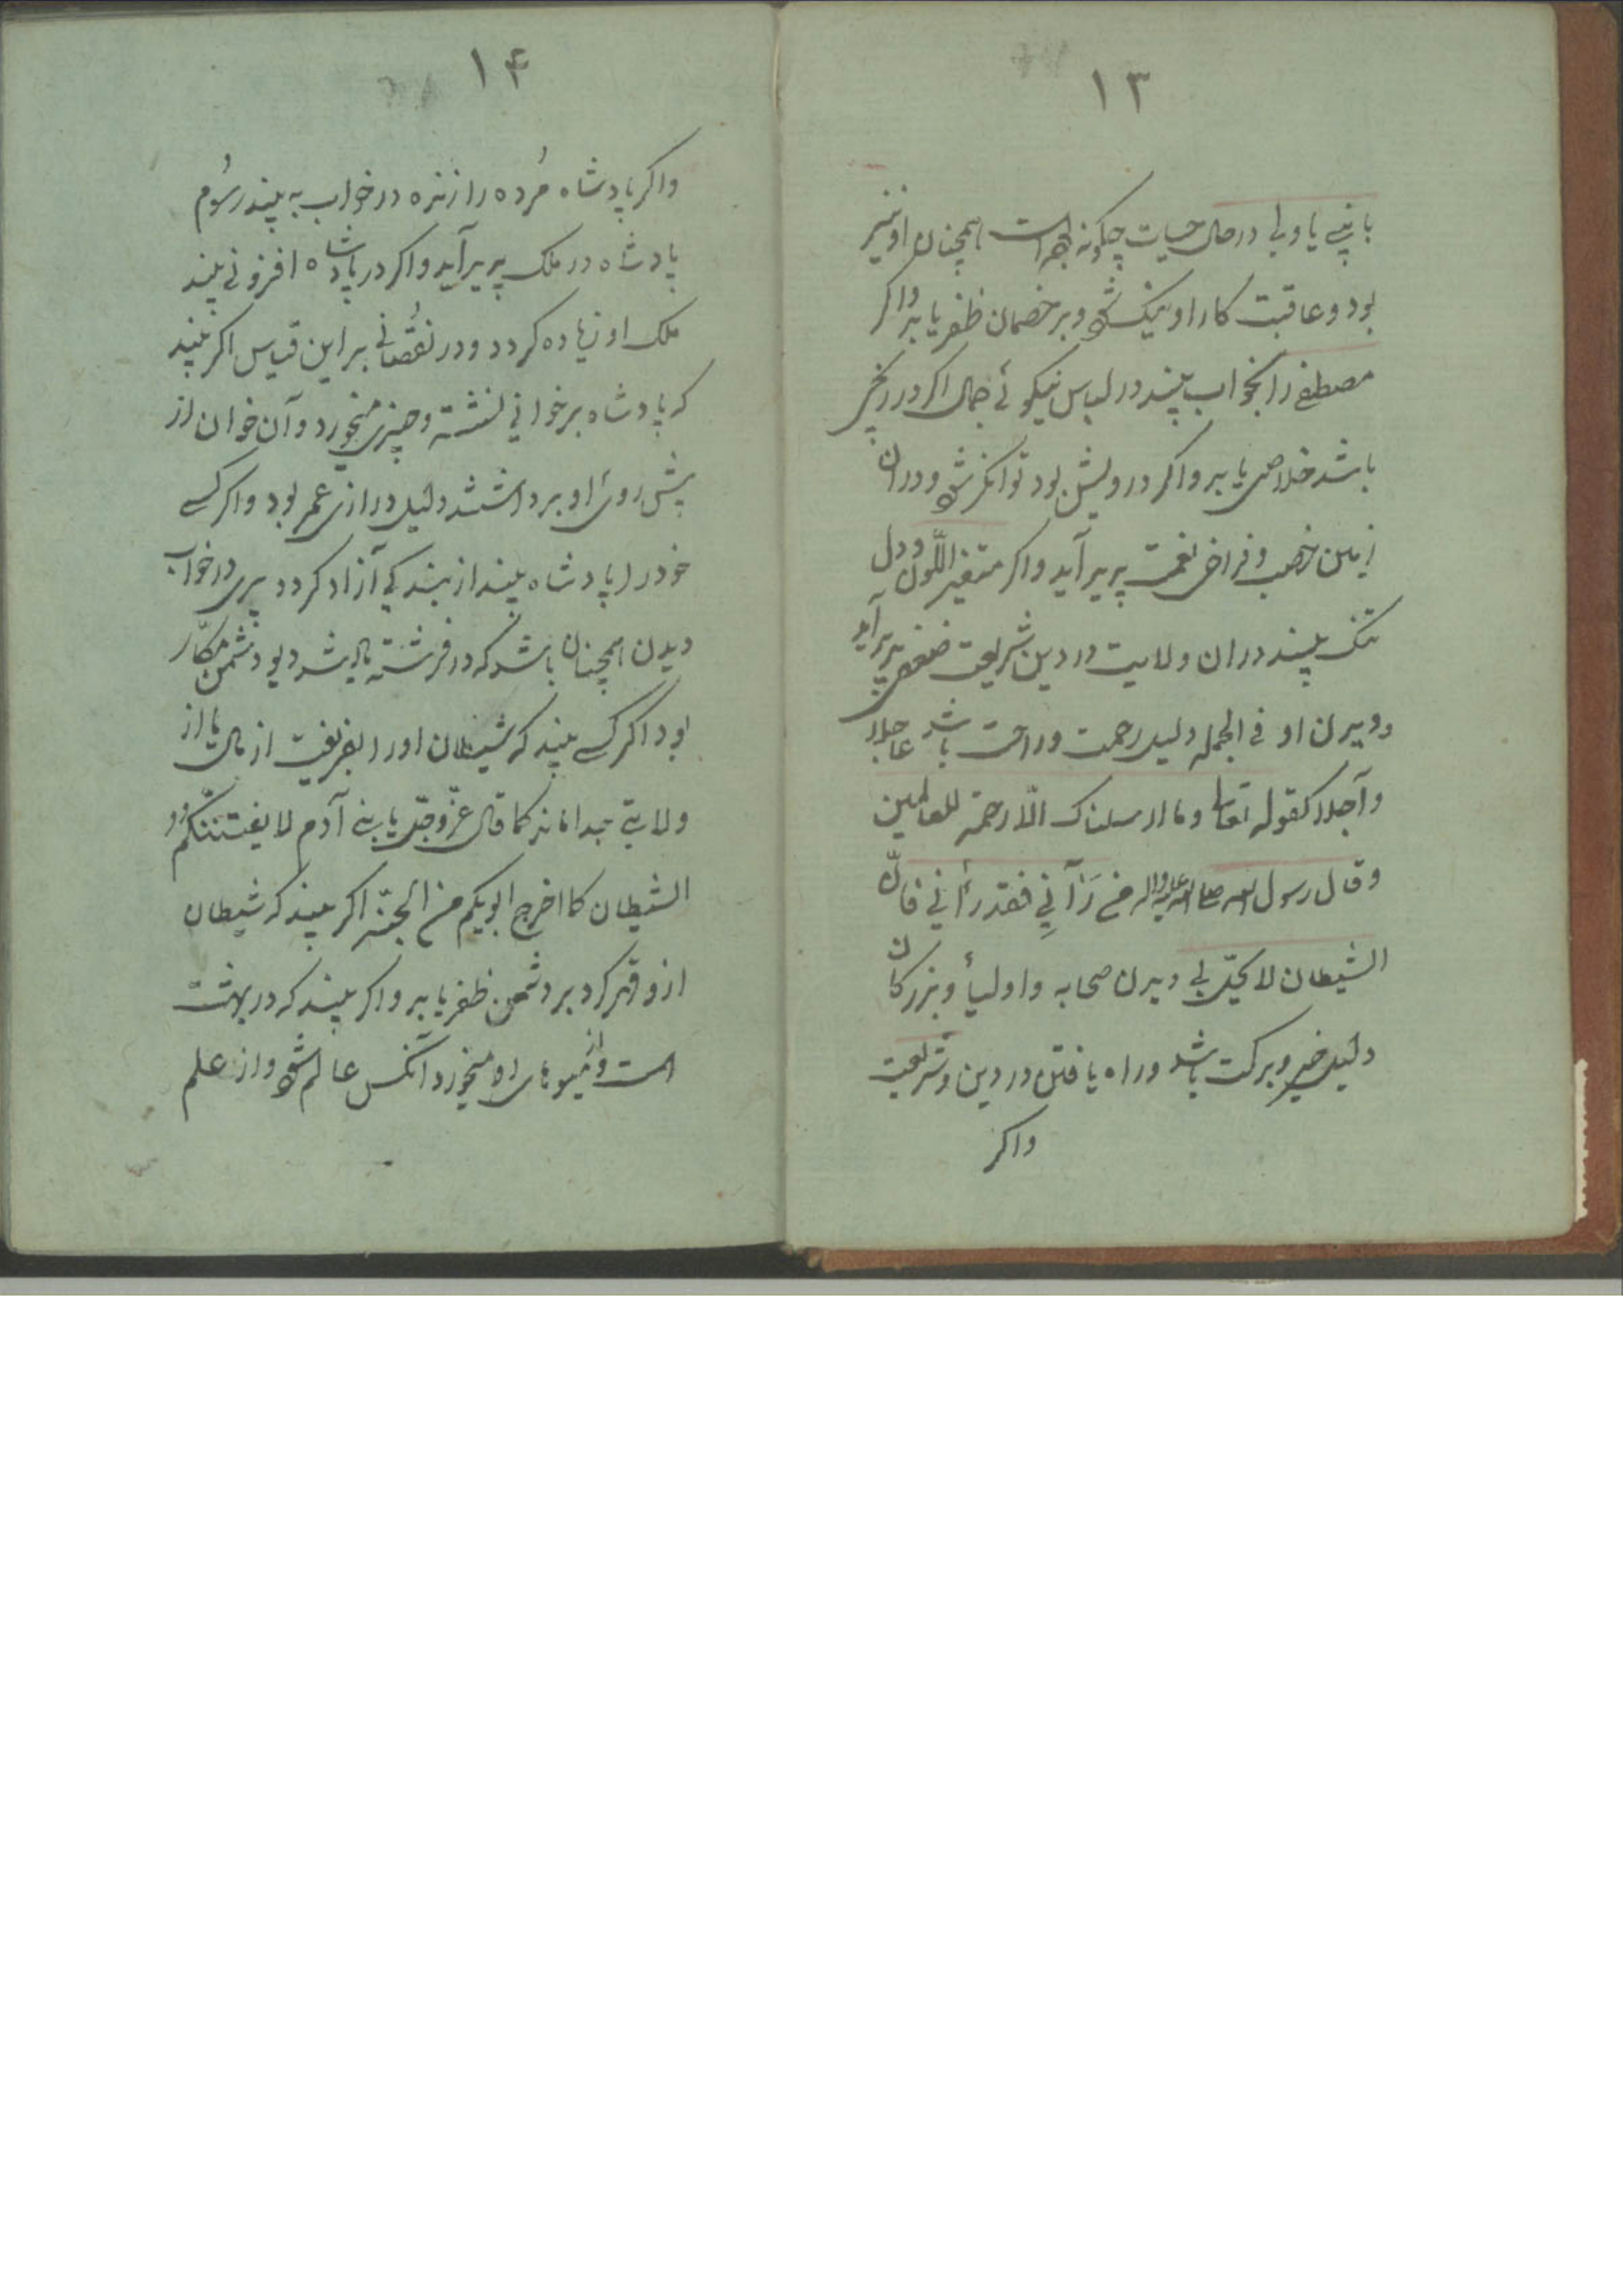 ۱۳
با نبی یا ولی در حال حیات چگونه بوده است همچنان او نیز
بود و عاقبت کار او نیک شود و بر خصمان ظفر یابد و اکر
مصطفی را بخواب بیند در لباس نیکوئی جمال اکر در رنجی
باشد خلاصی یابد و اکر درویش بود توانکر شود و در ان
زمین خصب و فراخی نعمت پدید آید و اکر متغیر اللّون و دل
تنک بیند در ان ولایت در دین شریعت ضعفی پدید آید
و دیدن او فی الجمله دلیل رحمت و راحت باشد عاجلا
و آجلا کقوله تعالی وما ارسلناک الّا رحمة للعالمین
وقال رسول الله صلی الله علیه واله من رَآنِی فقد رأنی فانّ
الشیطان لا یتخیّل بی دیدن صحابه و اولیأ و بزرکان
دلیل خیر و برکت باشد و راه یافتن در دین و شریعت
واکر
۱۴
واکر پادشاه مُرده را زنده در خواب به بیند رسُوم
پادشاه در ملک پدید آید و اکر در پادشاه افزونی بیند
ملک او زیاده کردد و در نقُصانی بر این قیاس اکر بیند
که پادشاه بر خوانی نشسته و چیزی میخورد و آن خوان از
پیش روی او برداشتند دلیل درازی عمر بود و اکر کسی
خود را پادشاه بیند از بندکی آزاد کردد پری در خواب
دیدن همچنان باشد که در فرشته یاد شد دیو دشمن مکّار
بود اکر کسی بیند که شیطان او را بفریفت از مال یا از
ولایتی جدا ماند کما قال عزّ وجلّ یا بنی آدم لا یفتننّکم
الشیطان کما اخرج ابویکم من الجنّه اکر بیند که شیطان
ازو قهر کرد بر دشمن ظفر یابد و اکر بیند که در بهشت
است و از میوهای او میخورد آنکس عالم شود و از علم